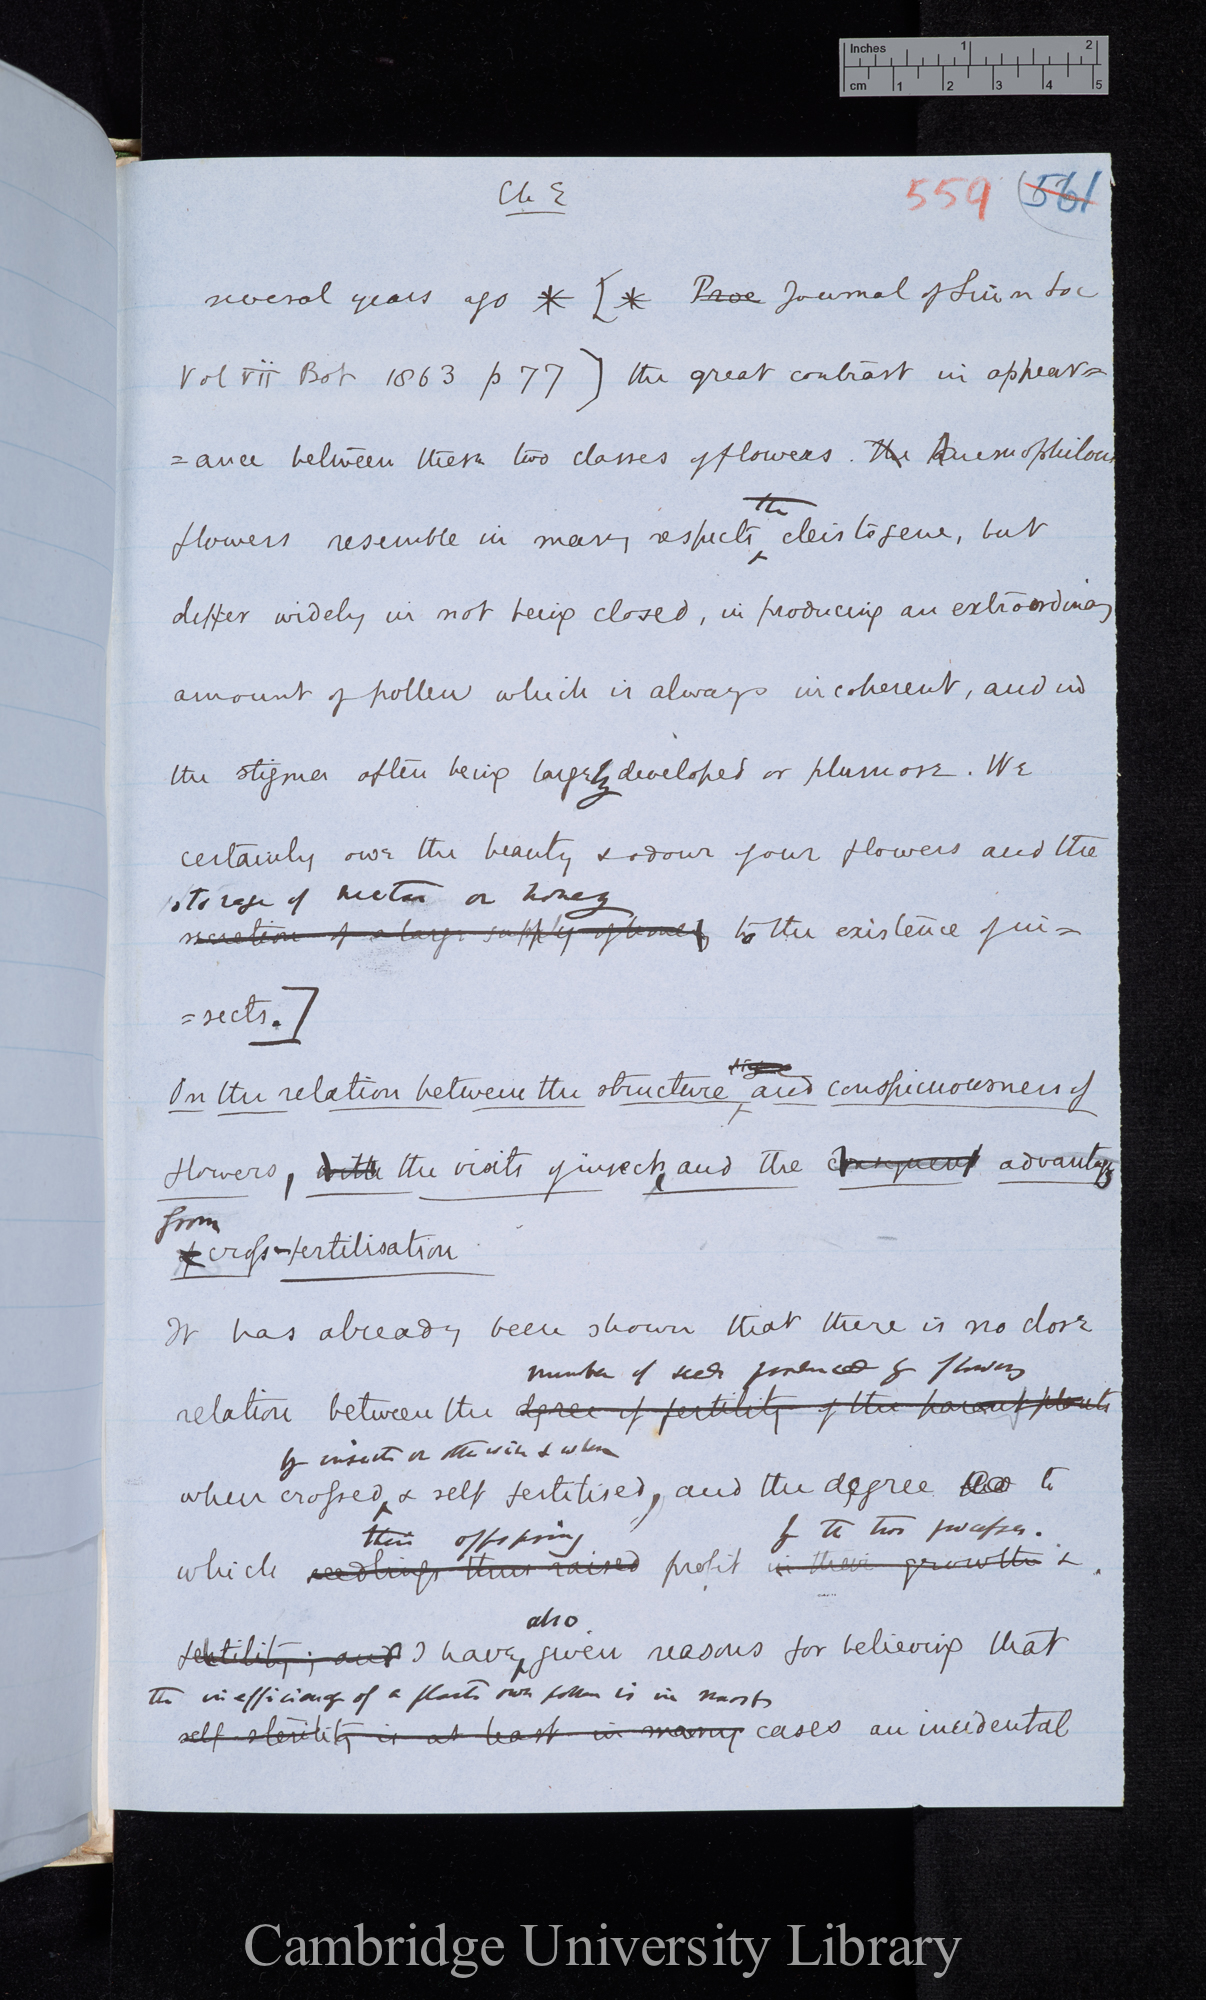 Inches 1 2
cm 1 2 3 4 5
Ch E
559 (561
several years ago * [* Proc Journal of Linn Soc
Vol VII Bot 1863 p 77) the great contrast in appear=
=ance between these two classes of flowers. The Anemophilous
the
flowers resemble in many respects cleistogene, but
differ widely in not being closed, in producing an extraordinary
amount of pollen which is always incoherent, and in
the stigma often being largely developed or plumose. We
certainly owe the beauty & odour of our flowers and the
storage of nectar or honey
secretion of a large supply of honey to the existence of in=
=sects.]
On the relation between the structure and conspicuousness of
flowers, with the visits of insects, and the consequent advantages
from
cross-fertilisation
It has already been shown that there is no close
number of seeds produced by flowers
relation between the degree of fertility of the parent plants
by insects or otherwise & when
when crossed & self fertilised, and the degree to
their offspring
by the two processes.
which seedlings thus raised profit in their growth &
also
fertility; and I have given reasons for believing that
the inefficiency of a plants own pollen is in most
self sterility is at least in many cases an incidental
Cambridge University Library